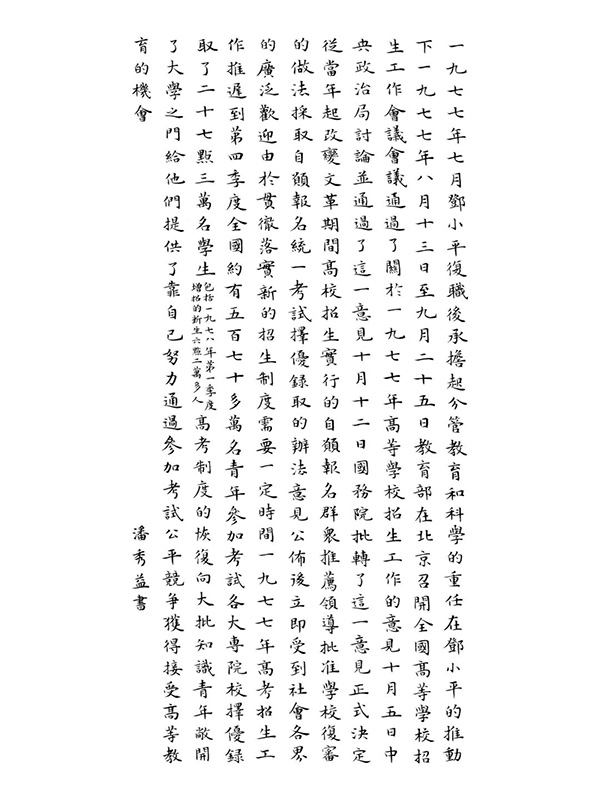 一九七七年七月鄧小平復職後承擔起分管教育和科學的重任在鄧小平的推動
下一九七七年八月十三日至九月二十五日教育部在北京召開全國高等學校招
生工作會議會議通過了關於一九七七年高等學校招生工作的意見十月五日中
央政治局討論並通過了這一意見十月十二日國務院批轉了這一意見正式決定
從當年起改變文革期間高校招生實行的自願報名群眾推薦領導批准學校復審
的做法採取自願報名統一考試擇優錄取的辦法意見公佈後立即受到社會各界
的廣泛歡迎由於貫徹落實新的招生制度需要一定時間一九七七年高考招生工
作推遲到第四季度全國約有五百七十多萬名青年參加考試各大專院校擇優錄
取了二十七點三萬名學生包括一九七八年第一季度增招的新生六點二萬多人高考制度的恢復向大批知識青年敞開
了大學之門給他們提供了靠自己努力通過參加考試公平競爭獲得接受高等教
育的機會
潘秀益書